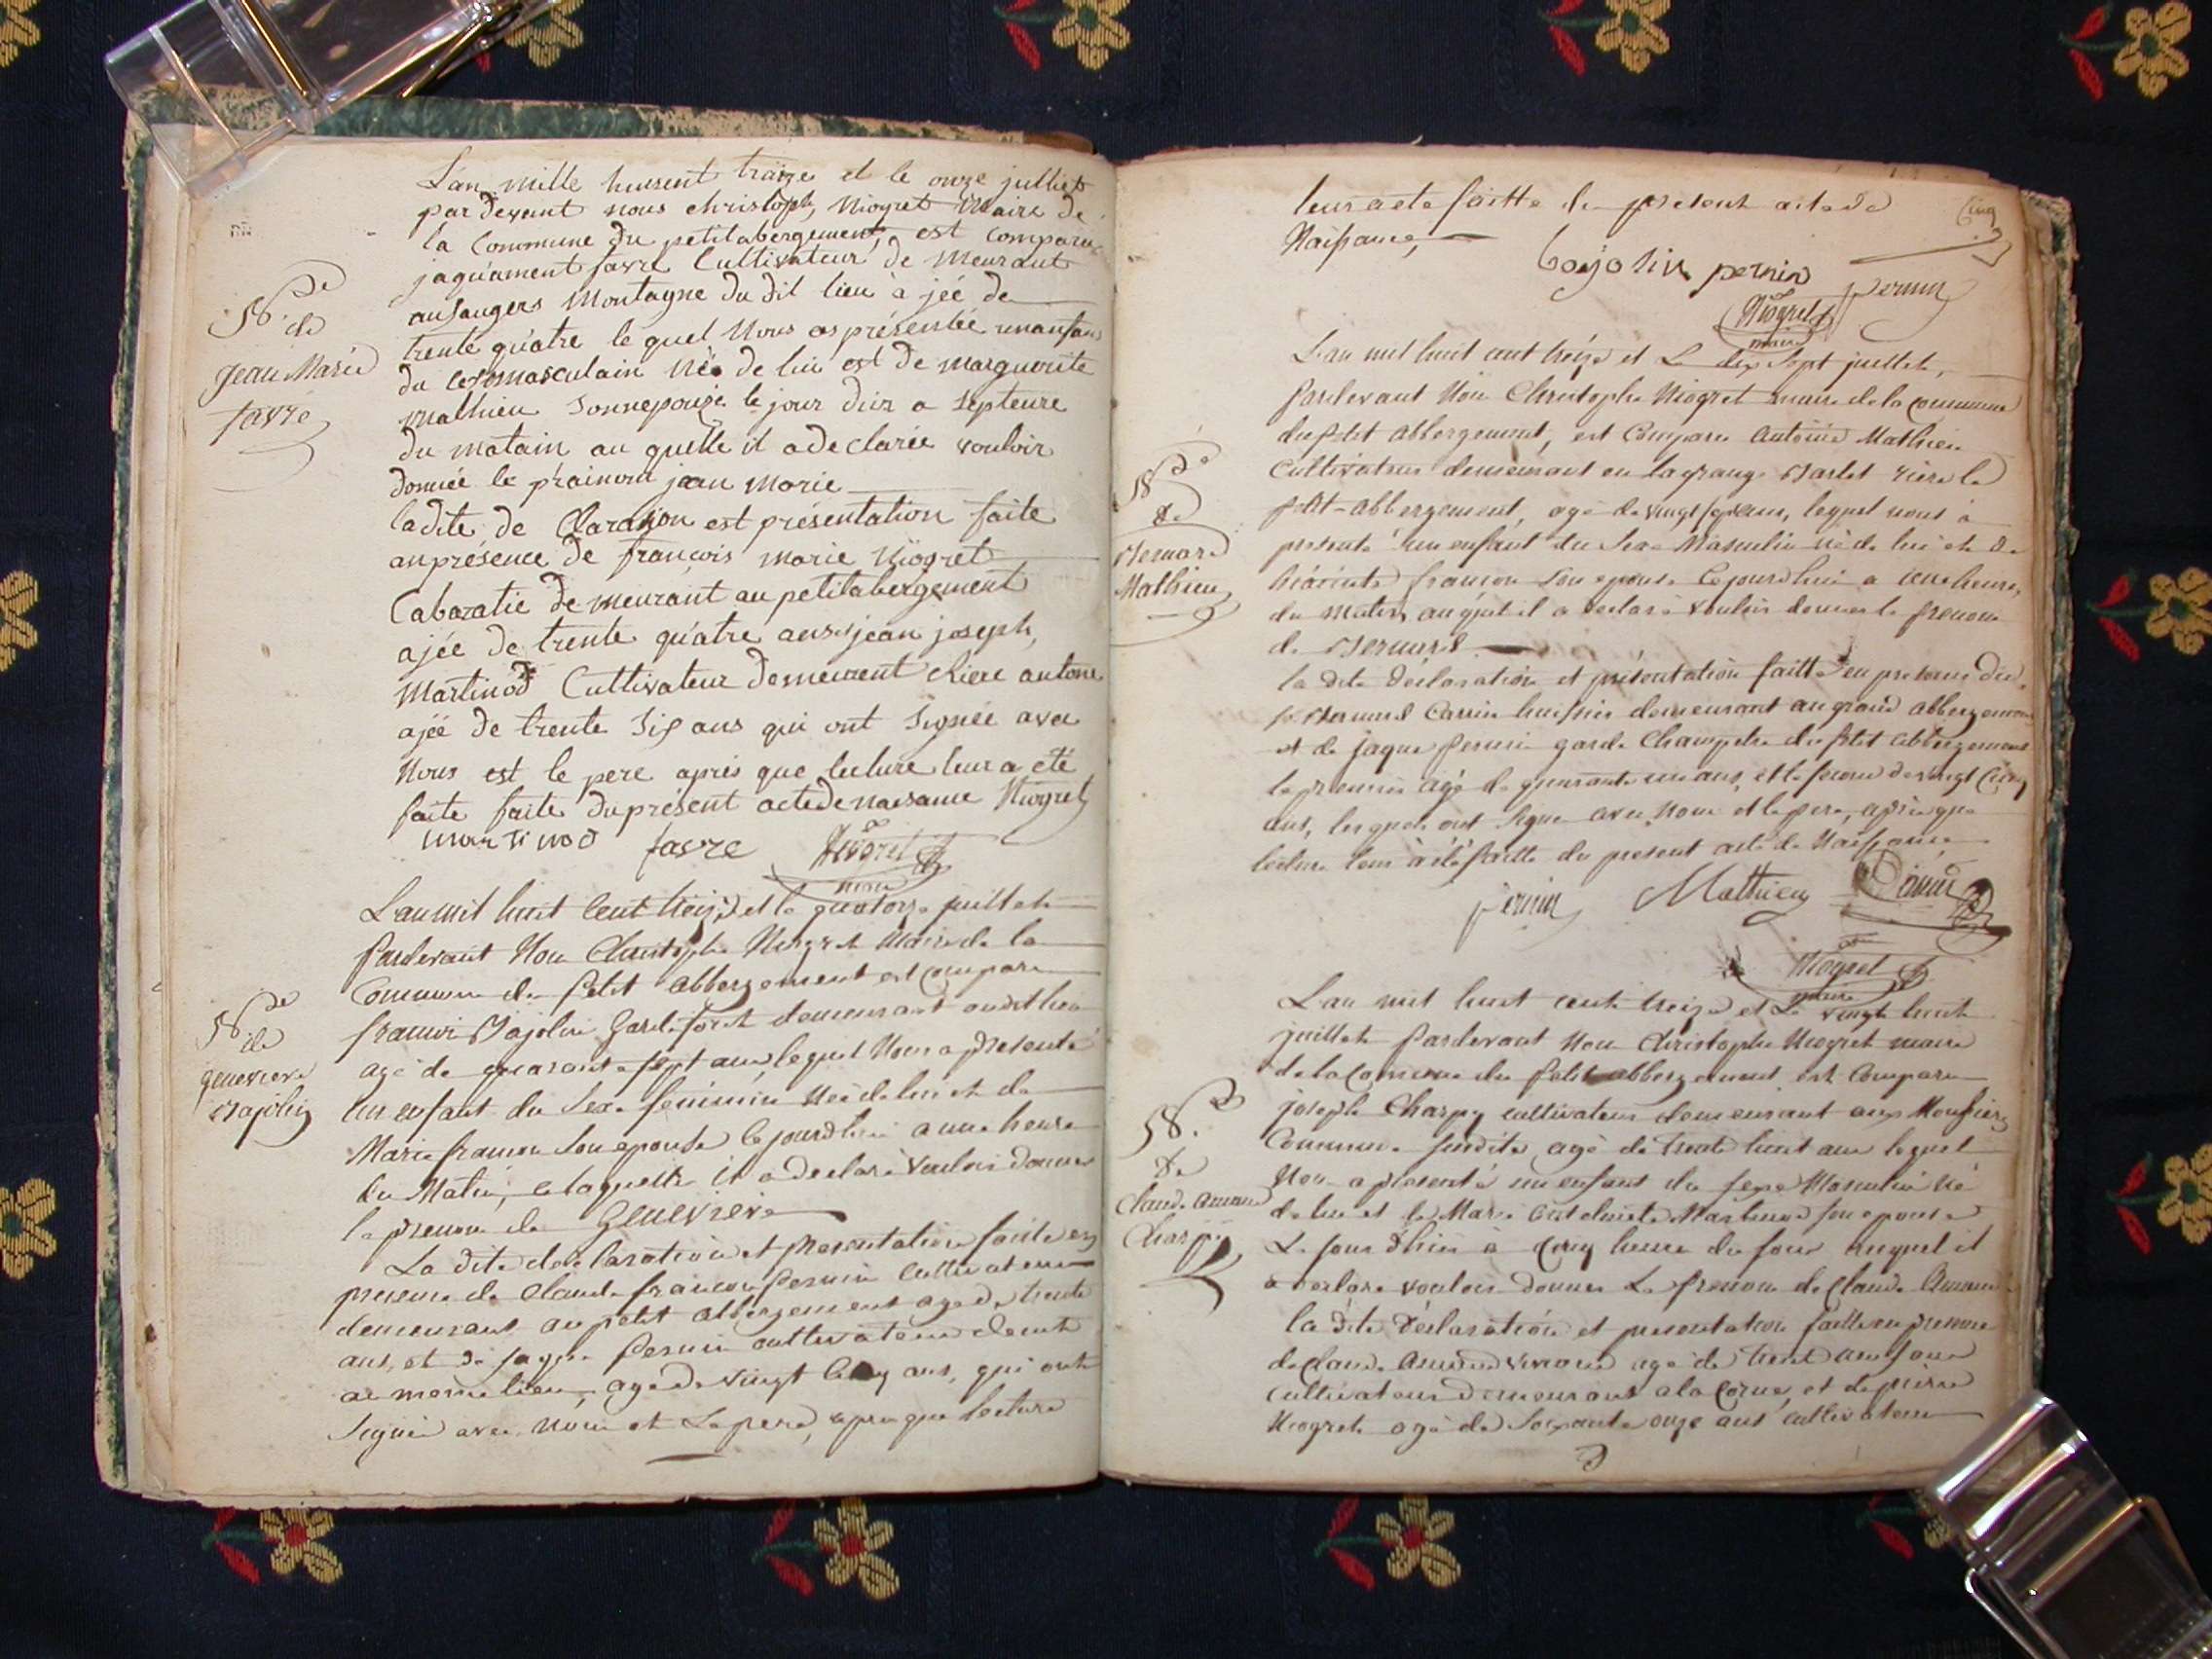 L'an mille huisent traize et le onze julliet
par devant nous christophe, Niogret Maire de
la Commune du petitabergement, est comparu
jaquament favre Cultivateur de Meurant
ausaugers Montagne du dit lieu à jéé de
trente quatre le quel Nous as présentée unanfan
du cexsmasculain née de lui est de marguerite
Mathieu Sonnepouze le jour dui a septeure
du matain au quelle il a de clarée vouloir
donnéé le prainom jean Marie
ladite de Claration est présentation faite
anprésence de françois Marie Niogret
Cabaratie de meurant au petitabergement
ajée de trente quatre ans et jean joseph,
Martinod Cultivateur demeurent chiere antone
ajéé de trente Six ans qui ont Signée avec
Nous est le pere aprés que lecture leur a été
faite faite duprésent actedenaesanse Niogret
Martinod favre Niogret
maire
Nce
de
jean Marie
favre
L'an mil huit cent treize et le quatorze juillet
Pardevant Nous Christophe Niogret Maire de la
Commune du petit abbergement est comparu
francoi Bajolin Garde foret demeurant audit lieu
agé de quarante sept ans, lequel Nous a presenté
un enfant du sexe feminin née de lui et de
Marie francon son epouse ce jourdhui a une heure
du Matin, a laquelle il a declaré vouloir donner
le prenom de Genevieve
La dite declaration et presentation faite en
presence de Claude francois Pernin cultivateur
demeurant au petit abbergement agé de trente
ans, et de jaque Pernin cultivateur demt
au meme lieu, agé de vingt cinq ans, qui ont
signé avec nous et le pere, apres que lecture
Nce
de
genevieve
Bajolin
leur a eté faitte du present acte de
Naissance,
Cinq
bajolin pernin
Pernin
Niogret
maire
L'an mil huit cent treize et le dix sept juillet,
Pardevant Nous Christophe Niogret maire de la commune
du petit abbergement, est comparu antoine Mathieu
cultivateur demeurant en la grange Barlet riere le
petit-abbergement, agé de vingt sept ans, lequel nous a
presenté un enfant du sexe Masculin né de lui et de
francon son epouse ce jourdhui a une heure,
du matin, auquel il a declaré vouloir donner le prenom
de Bernard
la dite declaration et présentation faitte en presence du
sr. Bernard Carrin huissier demeurant au grand abbergement
et de jaque Pernin garde Champetre du petit abbergement
le premier agé de quarante un ans, et le second de vingt cinq
ans, lesquels ont signé avec nous et le pere, après que
lecture leur à été faitte du present acte de Naissance
Pernin Mathieu
Niogret
maire
Nce
de
Bernard
Mathieu
L'an mil huit cent treize et le vingt huit
juillet Pardevant Nous Christophe Niogret maire
de la Commune du petit abbergement est comparu
joseph Charpy cultivateur demeurant aux Moussieres
Commune susdite, agé de trente huit ans lequel
Nous a presenté un enfant du sexe Masculin né
de lui et de Marie Martinod son epouse
Le jour d'hui à cinq heure du soir auquel il
a declaré vouloir donner Le prenom de Claude Amand
la dite déclaration et presentation faitte en presence
de Claude agé de trente ans
cultivateur demeurant a la Corne, et de pierre
Niogret agé de soixante onze ans cultivateur
Nce
de
Claude Amand
Charpy